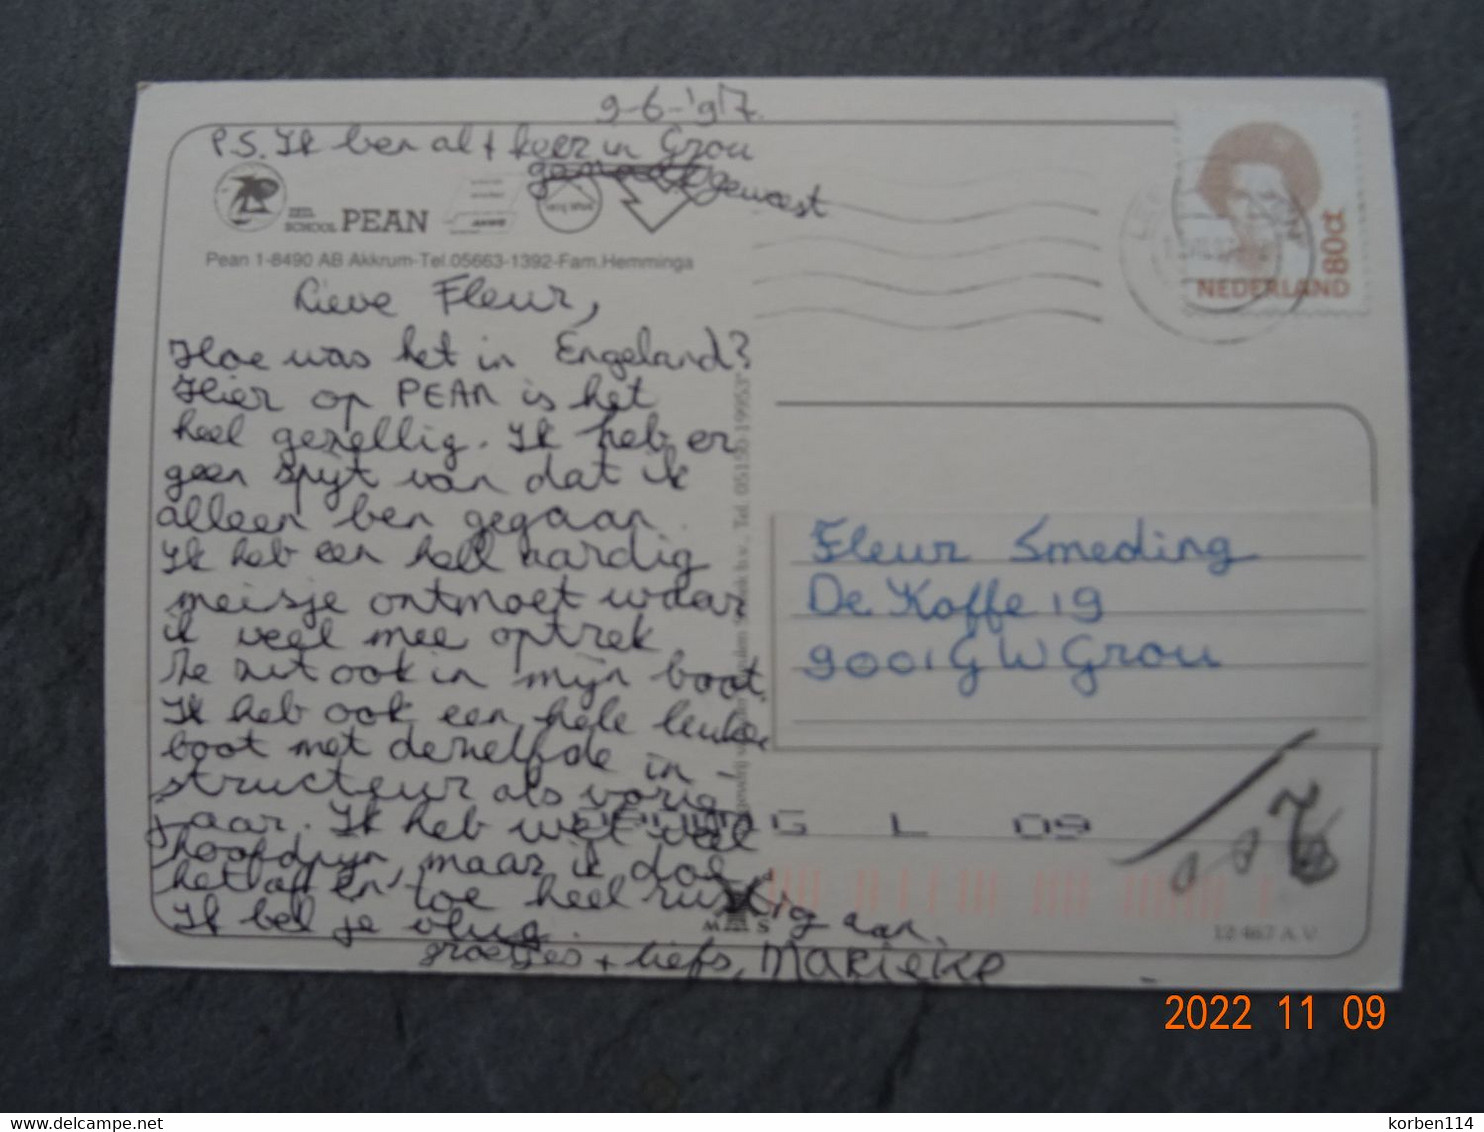 9-6-'97.
P.S. Ik ben al 1 keer in Grou
geweest
ZEIL
SCHOOL PEAN
Pean 1-8490 AB Akkrum-Tel.05663-1392-Fam.Hemminga
Lieve Fleur,
Hoe was het in Engeland?
Hier op PEAN is het
heel gezellig. Ik heb er
geen spijt van dat ik
alleen ben gegaan.
Ik heb een heel aardig
meisje ontmoet waar
ik veel mee optrek
Ze zit ook in mijn boot.
Ik heb ook een hele leuke
boot met dezelfde in-
structeur als vorig
jaar. Ik heb wel veel
hoofdpijn, maar ik doe
het af en toe heel rustig aan.
Ik bel je vlug.
groetjes + liefs, MARIEKE
Tel. 05150-19953
NEDERLAND
80ct
Fleur Smeding
De Koffe 19
9001 GW Grou
G L 09
M S
12 467 A.V.
2022 11 09
korben114